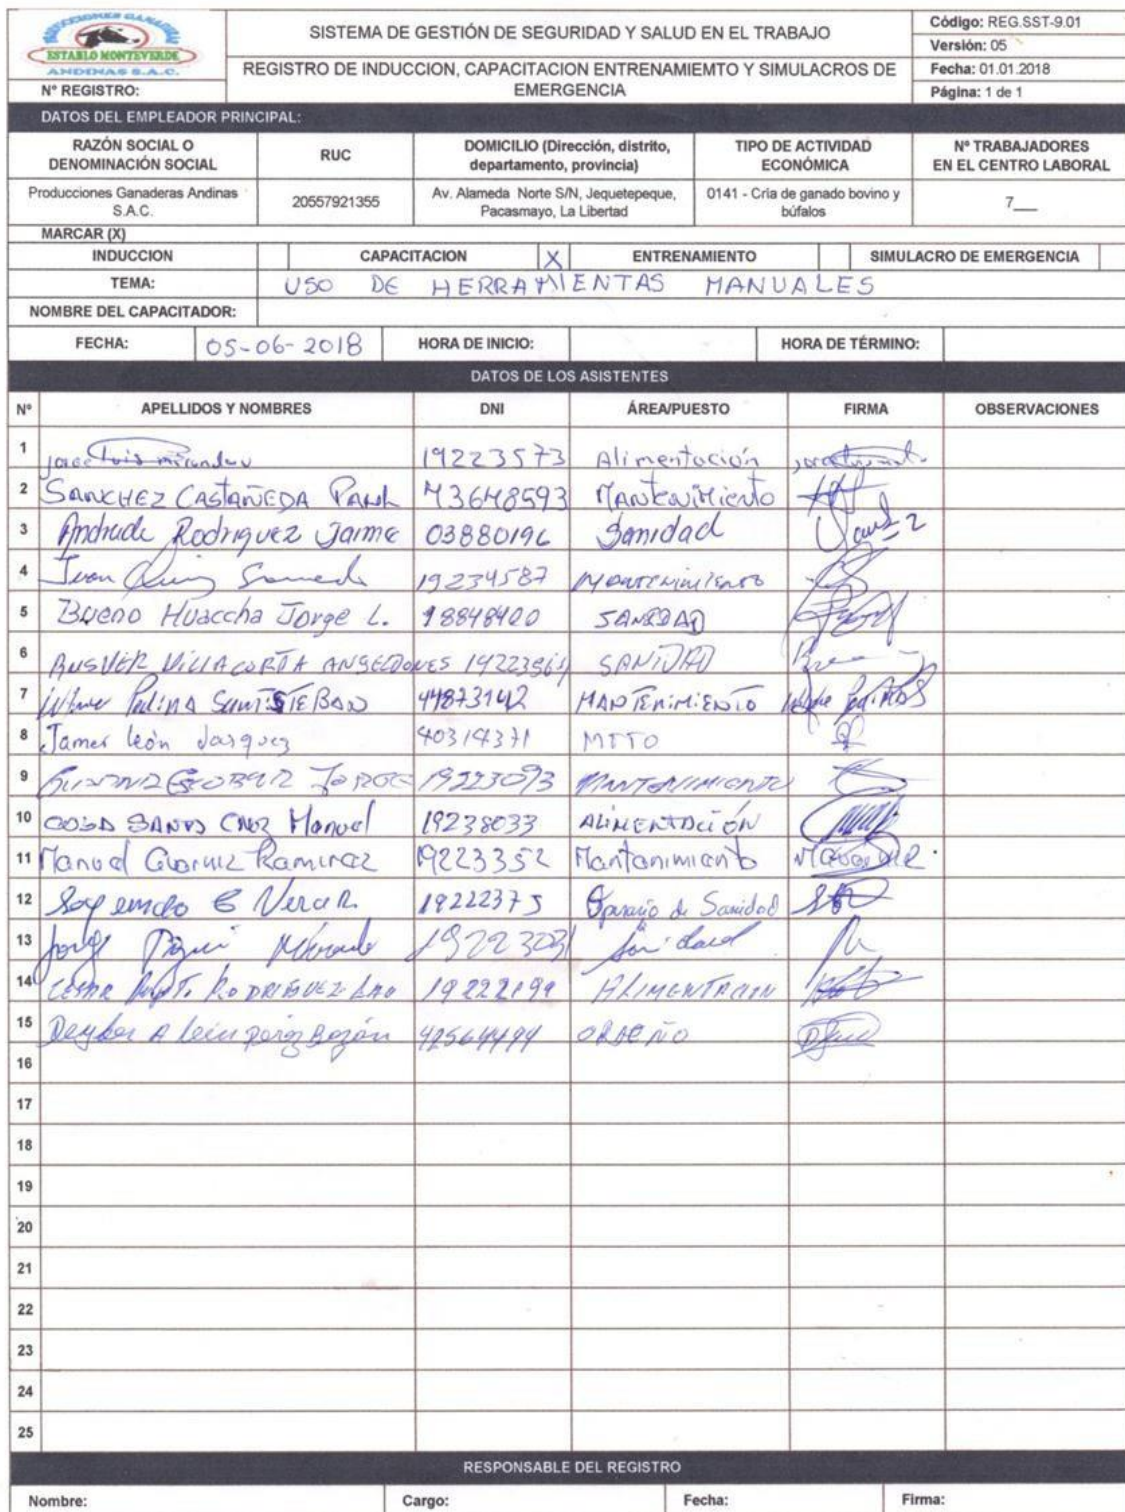 PRODUCCIONES GANADERAS
ESTABLO MONTEVERDE
ANDINAS S.A.C.
N° REGISTRO:
SISTEMA DE GESTIÓN DE SEGURIDAD Y SALUD EN EL TRABAJO
REGISTRO DE INDUCCION, CAPACITACION ENTRENAMIEMTO Y SIMULACROS DE
EMERGENCIA
Código: REG.SST-9.01
Versión: 05
Fecha: 01.01.2018
Página: 1 de 1
DATOS DEL EMPLEADOR PRINCIPAL:
RAZÓN SOCIAL O DENOMINACIÓN SOCIAL RUC DOMICILIO (Dirección, distrito, departamento, provincia) TIPO DE ACTIVIDAD ECONÓMICA N° TRABAJADORES EN EL CENTRO LABORAL
Producciones Ganaderas Andinas S.A.C. 20557921355 Av. Alameda Norte S/N, Jequetepeque, Pacasmayo, La Libertad 0141 - Cría de ganado bovino y búfalos 7__
MARCAR (X)
INDUCCION CAPACITACION X ENTRENAMIENTO SIMULACRO DE EMERGENCIA
TEMA: USO DE HERRAMIENTAS MANUALES
NOMBRE DEL CAPACITADOR:
FECHA: 05-06-2018 HORA DE INICIO: HORA DE TÉRMINO:
DATOS DE LOS ASISTENTES
N° APELLIDOS Y NOMBRES DNI ÁREA/PUESTO FIRMA OBSERVACIONES
1 Luis 19223573 Alimentación
2 SANCHEZ CASTAÑEDA 43648593 Mantenimiento
3 Andrade Rodriguez Jaime 03880196 Sanidad
4 19234587 Mantenimiento
5 Bueno Huaccha Jorge L. 18848400 SANIDAD
6 VILLACORTA SANIDAD
7 44873142 MANTENIMIENTO
8 León 40314371 MTTO
9 19223093 MANTENIMIENTO
10 Manuel 19238033 ALIMENTACIÓN
11 Manuel Ramirez 19223352 Mantanimianto
12 19222375 Operario de Sanidad
13 Sanidad
14 CESAR RODRIGUEZ 19222199 ALIMENTACION
15 42564494 ORDEÑO
16
17
18
19
20
21
22
23
24
25
RESPONSABLE DEL REGISTRO
Nombre: Cargo: Fecha: Firma: